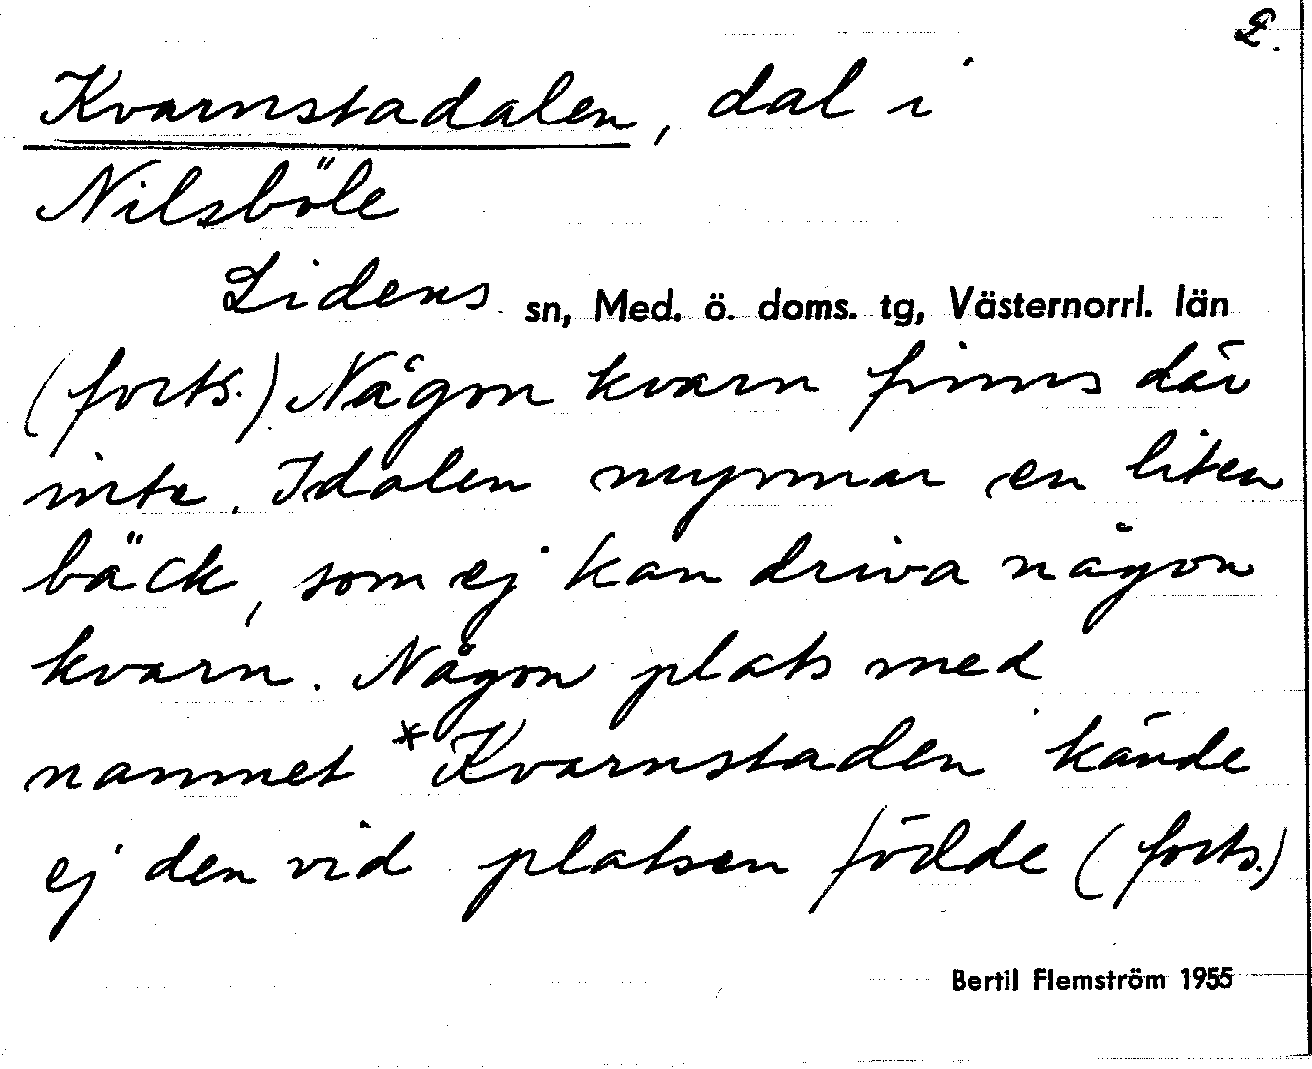 2.
Kvarnstadalen, dal i
Nilsböle
Lidens sn, Med. ö. doms. tg, Västernorrl. län
(forts.) Någon kvarn finns där
inte. I dalen mynnar en liten
bäck, som ej kan driva någon
kvarn. Någon plats med
namnet *Kvarnstaden kände
ej den vid platsen födde (forts.)
Bertil Flemström 1955